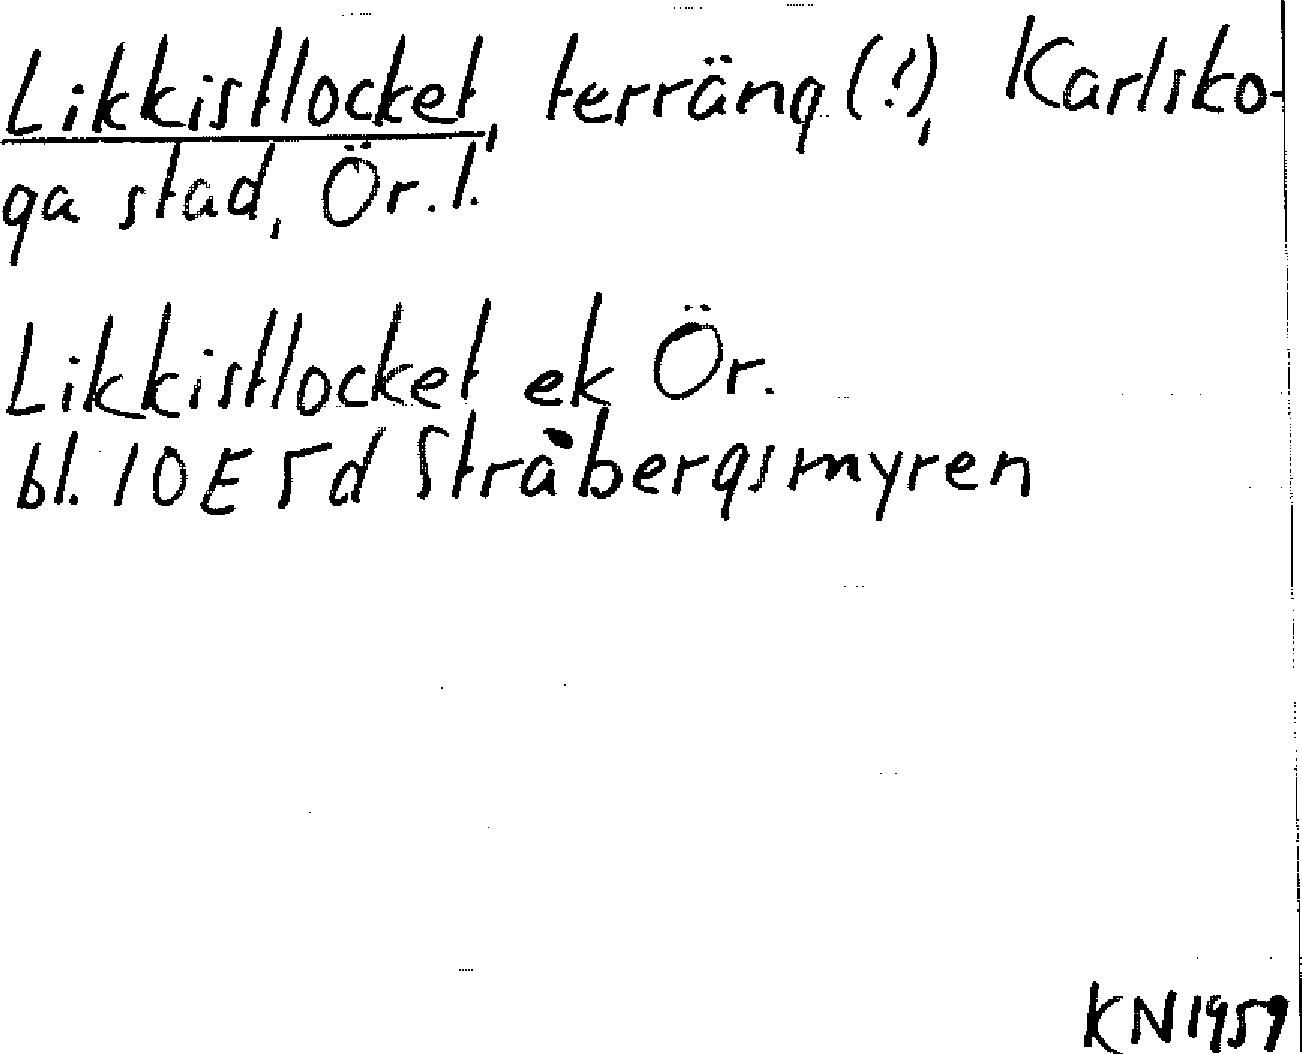 Likkistlocket, terräng (?), Karlsko-
ga stad, Ör. l.
Likkistlocket ek Ör.
bl. 10E 5d Stråbergsmyren
KN 1959